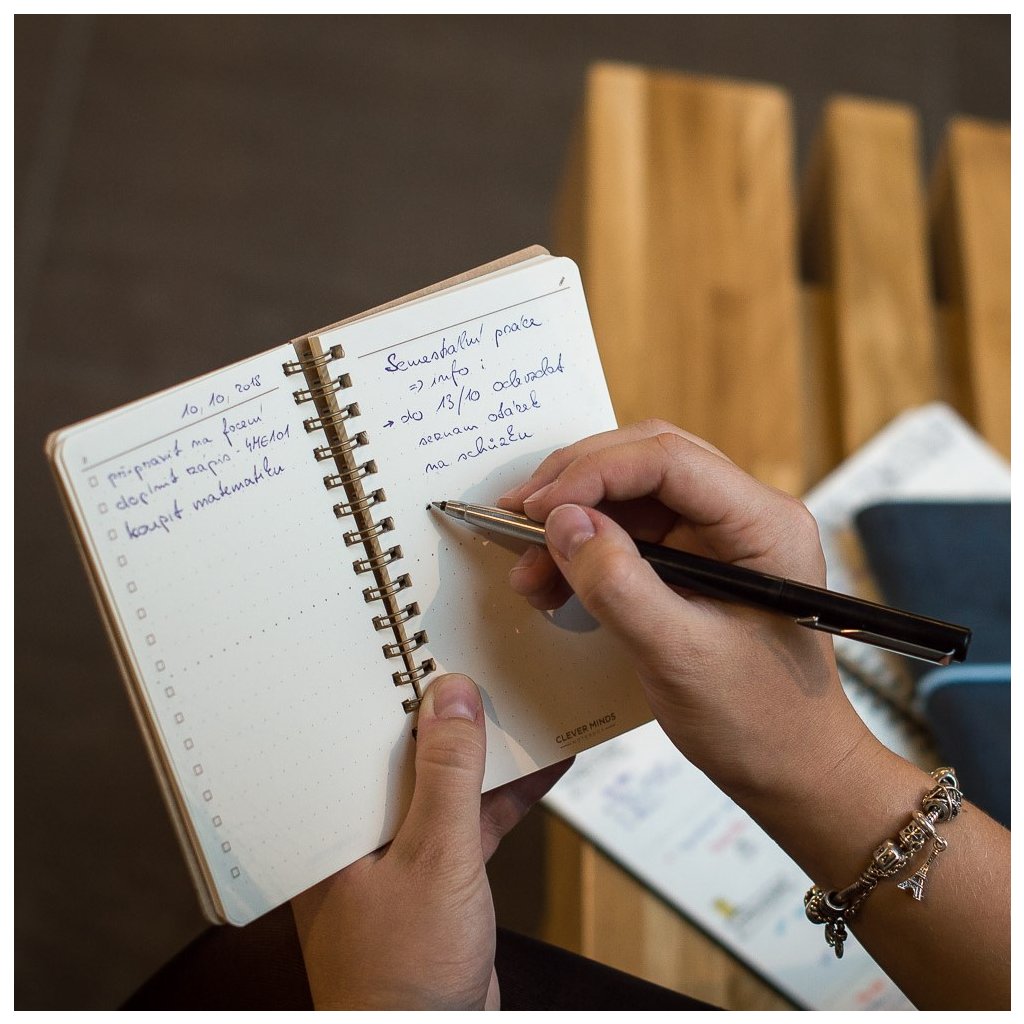 10. 10. 2018
připravit na focení
doplnit zápis. 4HE101
koupit matematiku
Semestrální práce
=> info :
→ do 13/10 odevzdat
seznam otázek
na schůzku
CLEVER MINDS